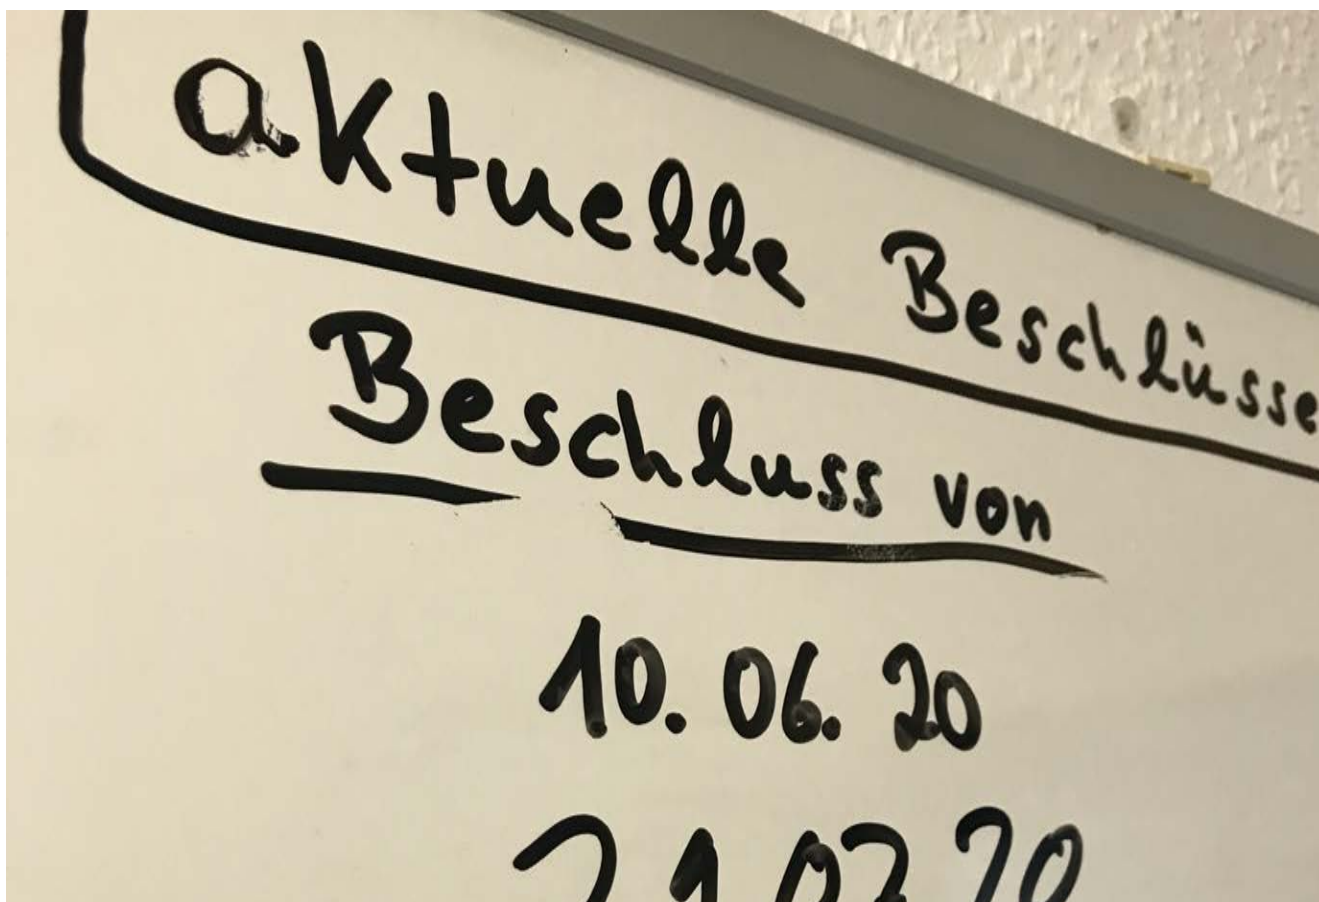 aktuelle Beschlüsse
Beschluss von
10.06.20